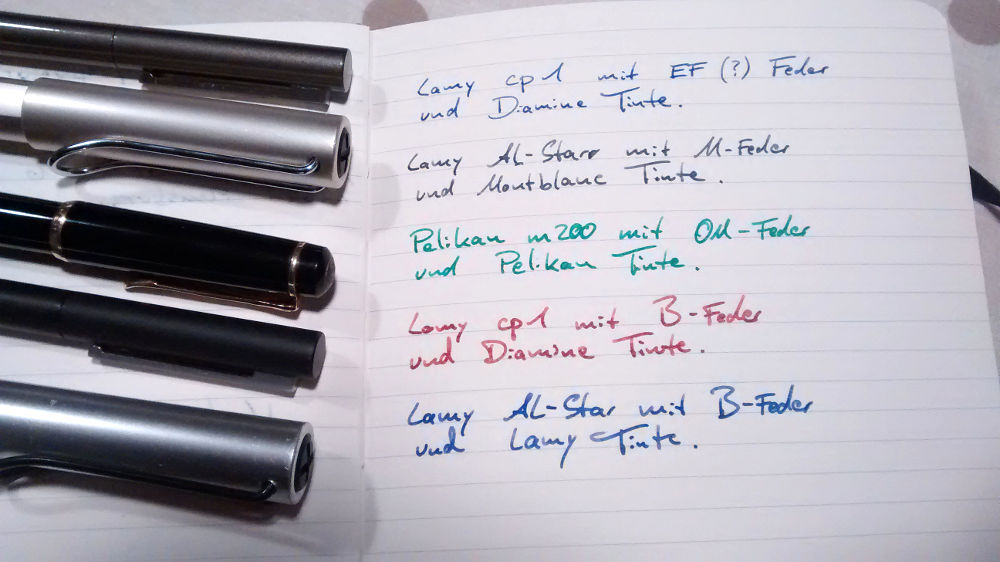 Lamy cp1 mit EF (?) Feder
und Diamine Tinte.
Lamy AL-Starr mit M-Feder
und Montblanc Tinte.
Pelikan m200 mit OM-Feder
und Pelikan Tinte.
Lamy cp1 mit B-Feder
und Diamine Tinte.
Lamy AL-Star mit B-Feder
und Lamy Tinte.